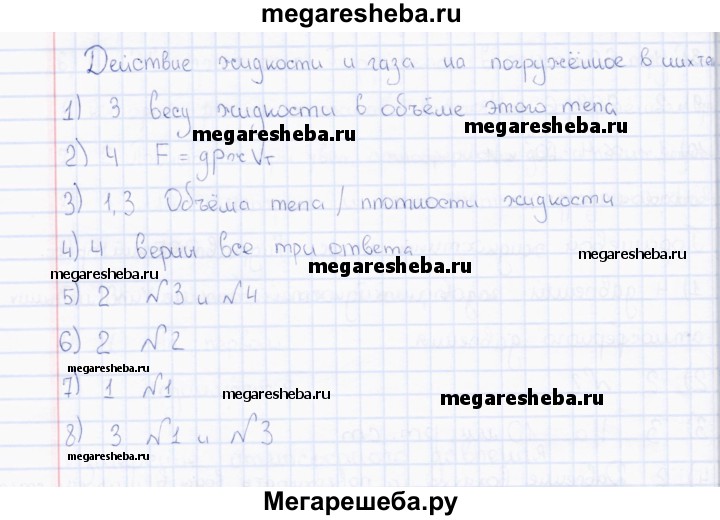 megaresheba.ru
Действие жидкости и газа на погружённое в них те
1) 3 весу жидкости в объёме этого тела
megaresheba.ru megaresheba.ru
2) 4 F = gρжVт
3) 1,3 Объёма тела / плотности жидкости
4) 4 верны все три ответа
megaresheba.ru megaresheba.ru megaresheba.ru
5) 2 №3 и №4
6) 2 №2
megaresheba.ru
7) 1 №1
megaresheba.ru megaresheba.ru
8) 3 №1 и №3
megaresheba.ru
Мегарешеба.ру